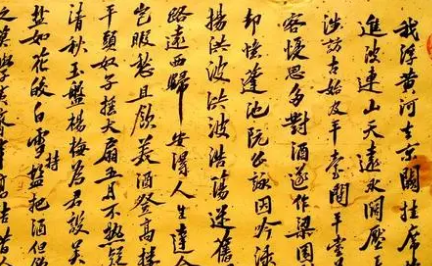 我浮黃河去京闕挂席
進波連山天遠水闊厭
涉訪古始及平臺間平臺
客憂思多對酒遂作梁園
却憶蓬池阮公詠因吟渌
揚洪波洪波浩蕩迷舊
路遠西歸安得人生達命
豈暇愁且飲美酒登高樓
平頭奴子摇大扇五月不熱疑
清秋玉盤楊梅為君設吴
盐如花皎白雪持盤把酒但
之莫學夷齊事高潔昔人